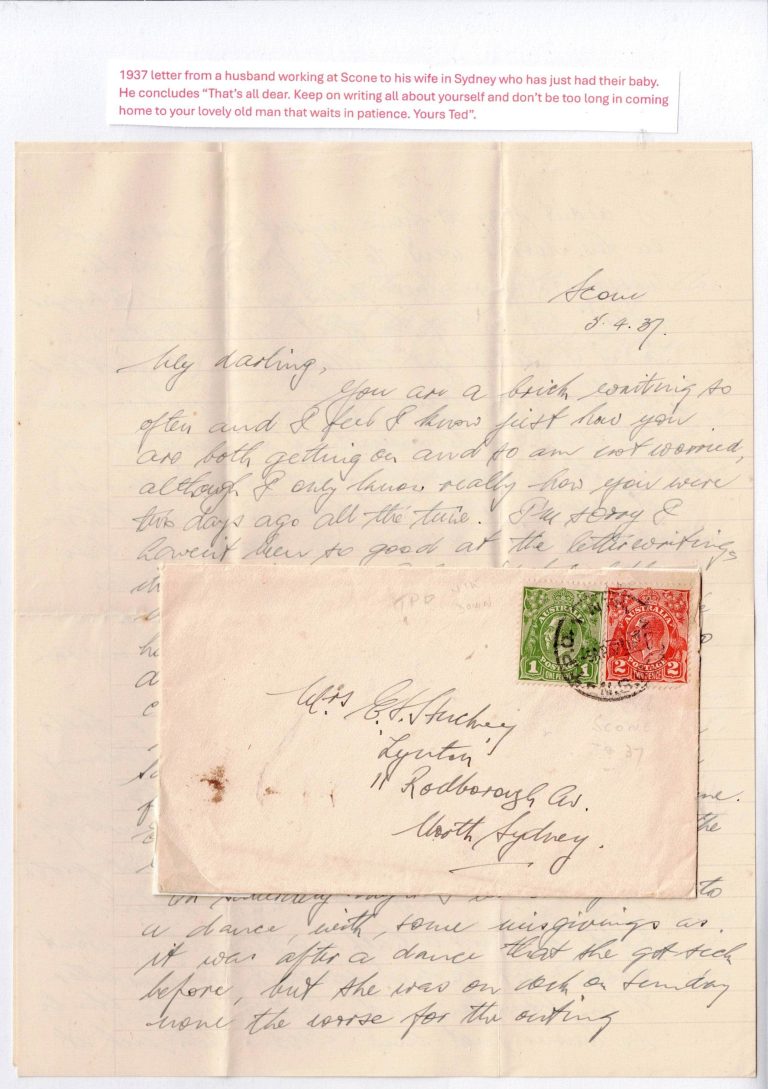 1937 letter from a husband working at Scone to his wife in Sydney who has just had their baby.
He concludes “That's all dear. Keep on writing all about yourself and don't be too long in coming
home to your lovely old man that waits in patience. Yours Ted”.
Scone
5.4.37.
My darling,
You are a brick writing so
often and I feel I know just how you
are both getting on and so am not worried,
although I only know really how you were
two days ago all the time. I'm sorry I
haven't been so good at the letterwritings
AUSTRALIA
POSTAGE
1 1
ONE PENNY
AUSTRALIA
POSTAGE
2 2
TWO PENCE
N.S.W
TPO
DOWN
SCONE
37
Mrs E.H. Stuckey
'Lynton'
11 Rodborough Av.
North Sydney.
the
to
a dance, with, some misgivings as.
it was after a dance that she got sick
before, but she was on deck on Sunday
none the worse for the outing